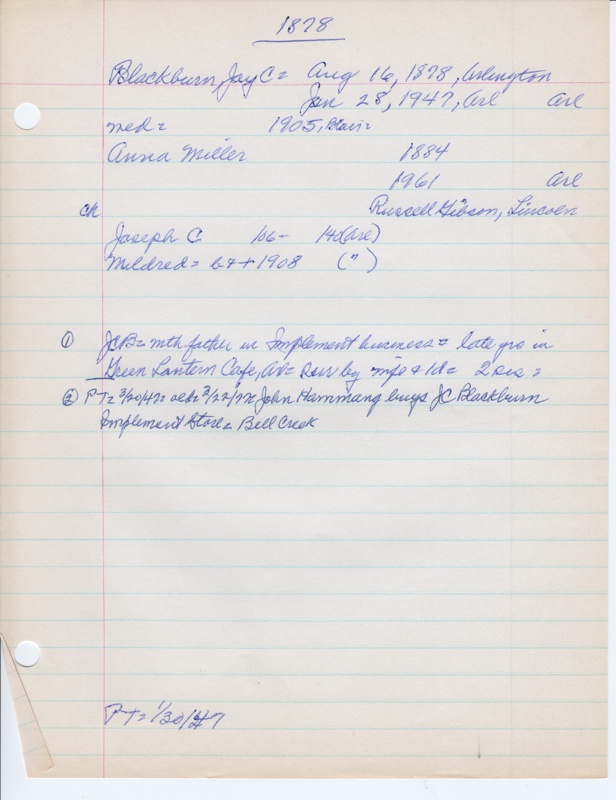 1878
Blackburn, Jay C = Aug 16, 1878, Arlington
Jan 28, 1947, Arl Arl
med = 1905, Blair =
Anna Miller 1884
1961 Arl
ch Russell Gibson, Lincoln
Joseph C 106 - 14d (Arl)
Mildred = b4+ 1908 (")
① JCB = with father in Implement business = late yrs in
Green Lantern Cafe, Av = surv by wife & 1d = 2 sis =
② PT = 3/20/47 = John Hammang buys JC Blackburn
Implement Store = Bell Creek
PT = 1/30/47